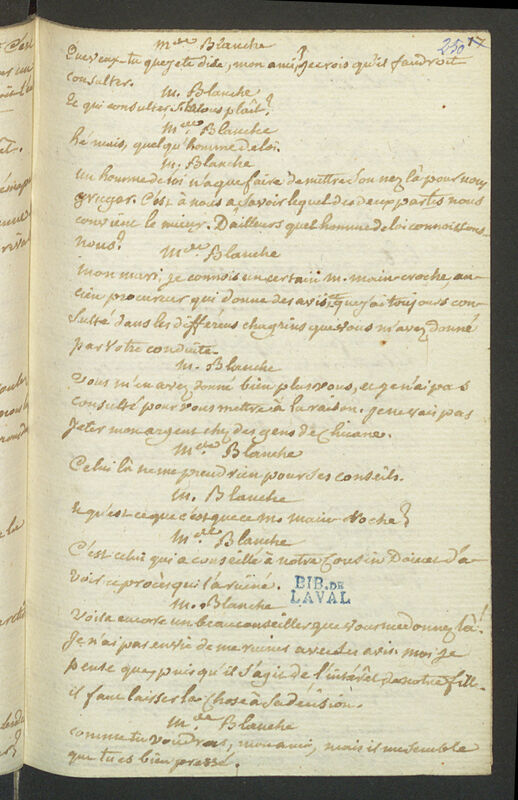 250 17
m.de Blanche
Que veux-tu que je te dise, mon ami, je crois qu'il faudroit
consulter.
m. Blanche
Et qui consulter s'il vous plaît?
m.de Blanche
hé mais, quelqu'homme de loi.
m. Blanche
un homme de loi n'a que faire de mettre son nez là pour nous
gruger. C'est à nous à savoir lequel des deux partis nous
convient le mieux. D'ailleurs quel homme de loi connoissons-
nous?
m.de Blanche
mon mari, je connois un certain m. main-croche, an-
cien procureur qui donne des avis, et que j'ai toujours con-
sulté dans les différens chagrins que vous m'avez donné
par votre conduite.
m. Blanche
vous m'en avez donné bien plus vous, et je n'ai pas
consulté pour vous mettre à la raison. je ne vais pas
jeter mon argent chez des gens de chicane.
m.de Blanche
Celui là ne me prend rien pour ses conseils.
m. Blanche
Et qu'est-ce que c'est que ce m. main-croche?
m.de Blanche
C'est celui qui a conseillé à notre Cousin Dainet d'a-
voir ce procès qui l'a ruiné.
BIB. DE
LAVAL
m. Blanche
voila encore un beau conseiller que vous me donnez là!
Je n'ai pas envie de me ruiner avec ses avis. moi je
pense que, puisqu'il s'agit de l'intérêt de notre fille
il faut laisser la chose à sa décision.
m.de Blanche
comme tu voudras, mon ami, mais il me semble
que tu es bien pressé.